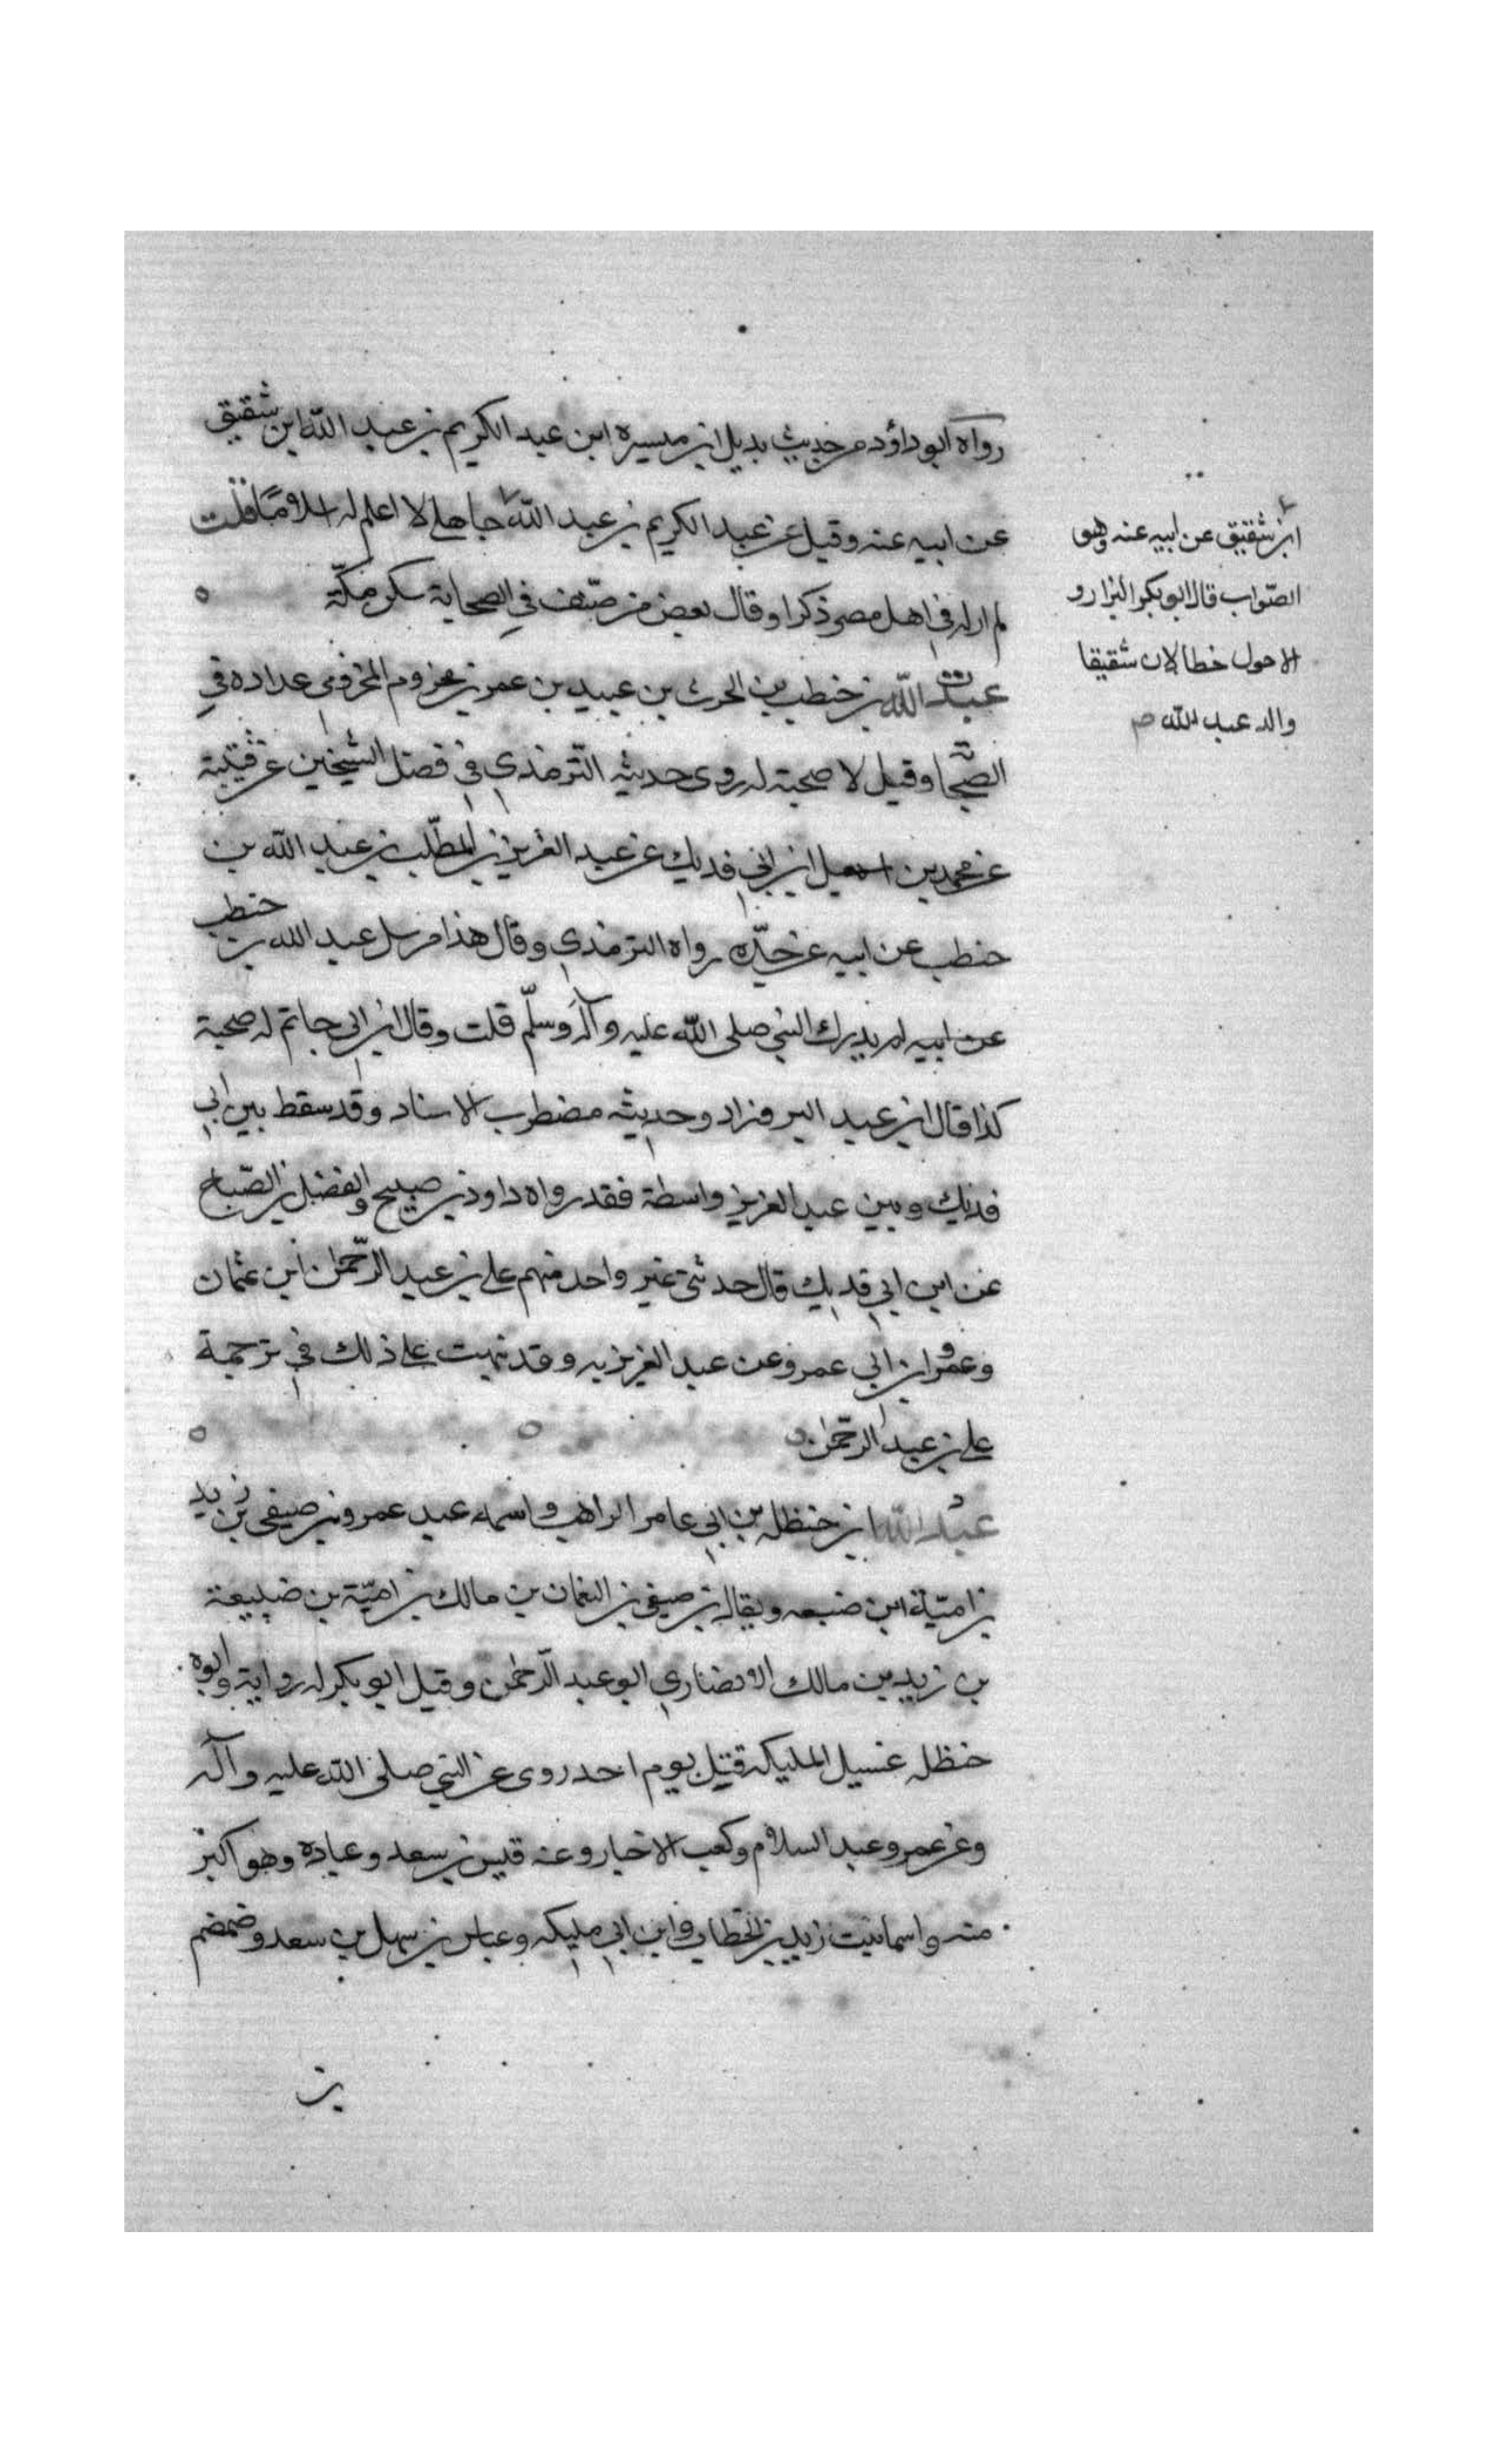 رواه ابو داؤد من حديث بديل ابن ميسره ابن عبد الكريم بن عبد الله ابن شقيق
عن ابيه عنه وقيل عن عبد الكريم بن عبد الله جاهلي لا اعلم له اسلاما قلت
لم ار له في اهل مصر ذكرا وقال بعض من صنف في الصحابة سكن مكة
عبد الله بن حنطب بن الحرث بن عبيد بن عمر بن مخزوم المخزومي عداده في
الصحابة وقيل لا صحبة له روى حديثه الترمذي في فضل الشيخين عن قتيبة
عن محمد بن اسمعيل ابن ابي فديك عن عبد العزيز بن المطلب بن عبد الله بن
حنطب عن ابيه عن جده رواه الترمذي وقال هذا مرسل عبد الله بن حنطب
عن ابيه لم يدرك النبي صلى الله عليه وآله وسلم قلت وقال ابن ابي حاتم له صحبة
كذا قال ابن عبد البر وزاد وحديثه مضطرب الاسناد وقد سقط بين ابي
فديك وبين عبد العزيز واسطة فقد رواه داود بن صبيح والفضل بن الصباح
عن ابن ابي فديك قال حدثني غير واحد منهم علي بن عبد الرحمن ابن عثمان
وعمرو ابن ابي عمرو عن عبد العزيز به وقد نبهت على ذلك في ترجمة
علي بن عبد الرحمن
عبد الله ابن حنظله بن ابي عامر الراهب واسمه عبد عمرو بن صيفي بن زيد
بن امية ابن ضبعه ويقال بن صيفي بن النعمان بن مالك بن امية بن ضبيعة
بن زيد بن مالك الانصاري ابو عبد الرحمن وقيل ابو بكر له رواية وابوه
حنظله غسيل المليكه قتل يوم احد روى عن النبي صلى الله عليه وآله
وعن عمر وعبد السلام وكعب الاحبار وعنه قيس بن سعد وعباده وهو اكبر
منه واسما بنت زيد بن الخطاب وابن ابي مليكه وعباس بن سهل بن سعد وضمضم
بن
ابن شقيق عن ابيه عنه وهو
الصواب قال ابو بكر البزار و
الاحول خطا لان شقيقا
والد عبد الله